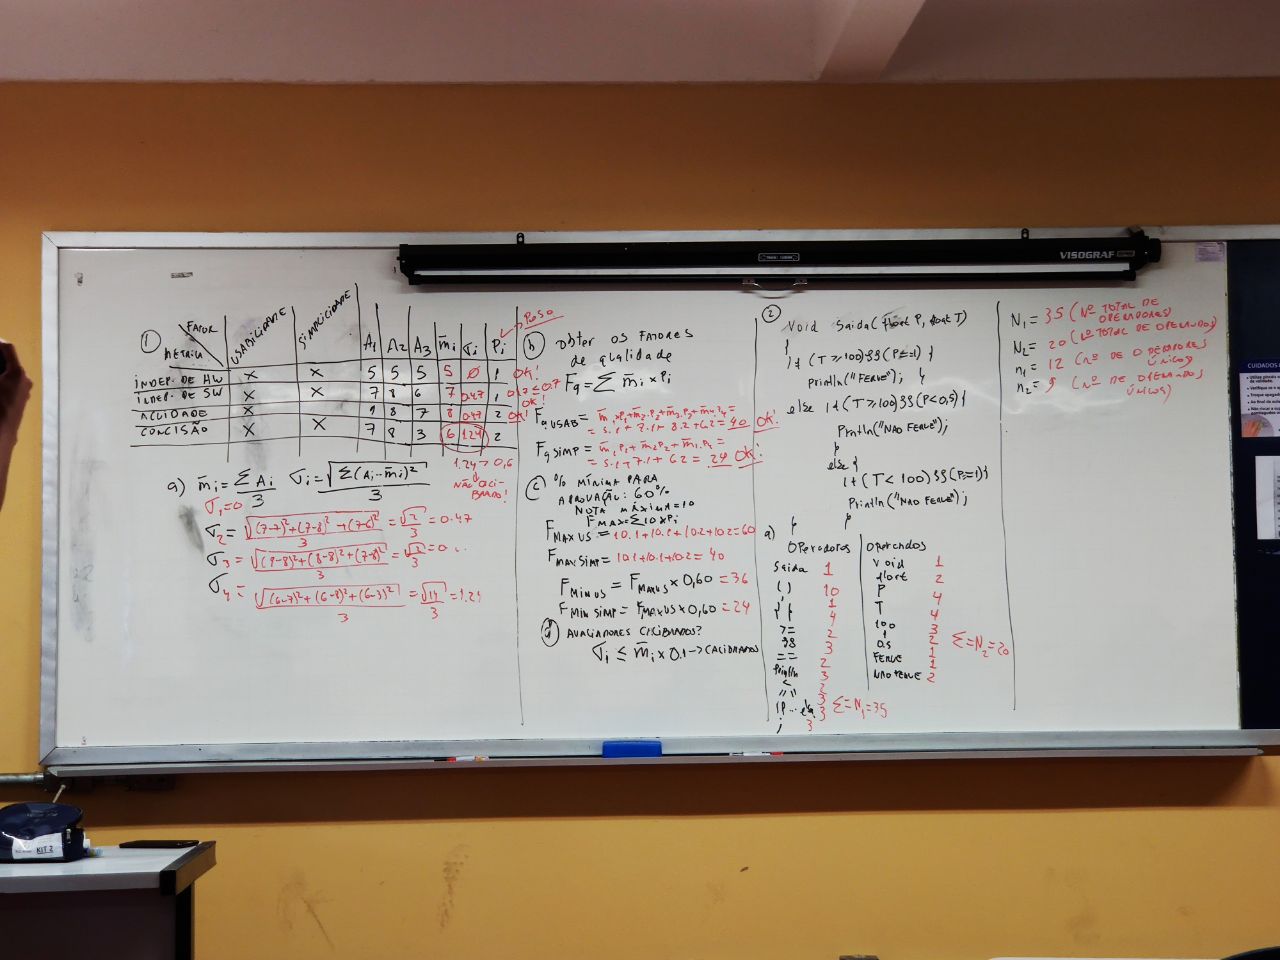 VISOGRAF
1
FATOR
MÉTRICA
USABILIDADE
SIMPLICIDADE
A1 A2 A3 m̄i σi Pi → PESO
INDEP. DE HW X X 5 5 5 5 0 1 OK!
INDEP. DE SW X X 7 8 6 7 0.47 1 0.47 ≤ 0.7 OK!
X 9 8 7 8 0.47 2 OK!
CONCISÃO X X 7 8 3 6 1.24 2
1.24 > 0,6
NÃO CALI-
BRADO!
a) m̄i = ΣAi/3 σi = √Σ(Ai-m̄i)²/3
σ1 = 0
σ2 = √(7-7)²+(7-8)²+(7-6)²/3 = √2/3 = 0.47
σ3 = √(9-8)²+(8-8)²+(7-8)²/3 = √2/3 = 0...
σ4 = √(6-7)²+(6-8)²+(6-3)²/3 = √14/3 = 1.24
b) OBTER OS FATORES
DE QUALIDADE
Fq = Σ m̄i × Pi
FqUSAB = m̄1×P1+m̄2.P2+m̄3.P3+m̄4.P4=
= 5.1+7.1+8.2+6.2= 40 OK!
FqSIMP = m̄1P1+m̄2P2+m̄4P4=
= 5.1+7.1+6.2= 24 OK!
c) % MÍNIMA PARA
APROVAÇÃO: 60%
NOTA MÁXIMA=10
FMAX=Σ10×Pi
FMAXUS = 10.1+10.1+10.2+10.2=60
FMAXSIMP = 10.1+10.1+10.2= 40
FMINUS = FMAXUS×0,60=36
FMINSIMP = FMAXUS×0,60=24
d) AVALIADORES CALIBRADOS?
σi ≤ m̄i×0.1 → CALIBRADOS
2
Void Saida(float P, float T)
{
if (T≥100)&&(P==1) {
println("FERVE"); }
else if(T≥100)&&(P<0,5){
Println("NAO FERVE");
}
else{
if(T<100)&&(P==1){
Println("NAO FERVE");
}
}
a)
OPERADORES
Saida 1
( ) 10
, 1
{ } 4
>= 2
&& 3
== 2
Println 3
< 2
" " 3
if...else 3
; 3
Σ=N1=35
OPERANDOS
Void 1
float 2
P 4
T 4
100 3
1 2
0.5 1
FERVE 1
NAO FERVE 2
Σ=N2=20
N1 = 35 (Nº TOTAL DE
OPERADORES)
N2 = 20 (Nº TOTAL DE OPERANDOS)
n1 = 12 (Nº DE OPERADORES
ÚNICOS)
n2 = 9 (Nº DE OPERANDOS
ÚNICOS)
KIT 2
CUIDADOS